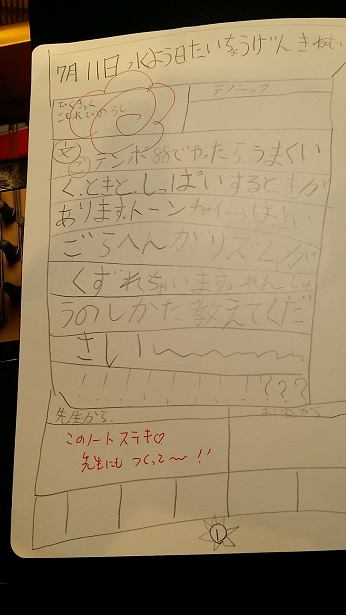 7月11日 水よう日 たいちょうげんき ねむい
ひくきょく
こもれびのろし
テクニック
文 テンポ88でやったら、うまくい
く、ときと、しっぱいするときが
あります。トーンチャイムは、さい
ごらへんがリズムが
くずれちゃいます。れんしゅ
うのしかた教えてくだ
さい
!!!!!!!???
先生から
このノートステキ♡
先生にもつくって〜!!
1